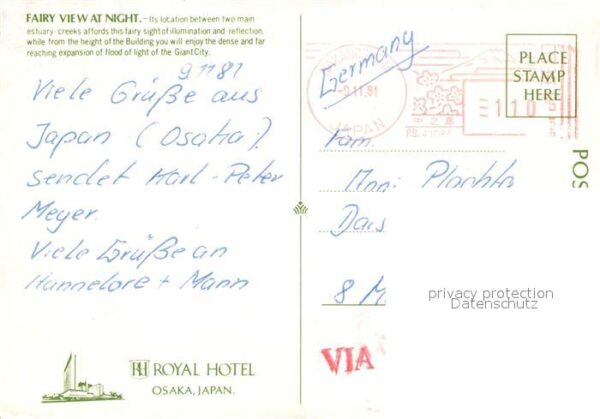 FAIRY VIEW AT NIGHT.—Its location between two main
estuary-creeks affords this fairy sight of illumination and reflection,
while from the height of the Building you will enjoy the dense and far
reaching expansion of flood of light of the Giant City.
9 11 81
Viele Grüße aus
Japan (Osaka)
sendet Karl-Peter
Meyer.
Viele Grüße an
Hannelore + Mann
RH ROYAL HOTEL
OSAKA, JAPAN.
Germany
-9.11.81
JAPAN
中之島
110
PLACE
STAMP
HERE
POS
Fam.
Anni Plachta
8 M
privacy protection
Datenschutz
VIA